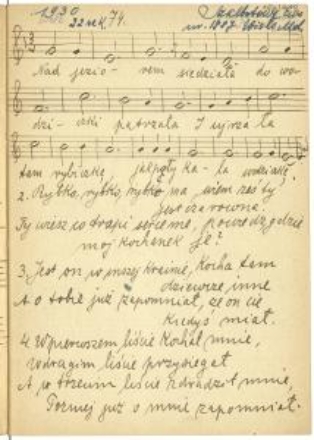 1930
22 rok. 74.
Nad jezio - rem siedziała do wo-
dzi - czki patrzała I ujrzała
tam rybiczkę,
2. Rybko, rybko, rybko ma, wiem żeś ty
jest czarowna.
Ty wiesz co trapi serce me, powiedz gdzie
mój kochanek je?
3. Jest on w inszej krainie, Kocha tam
dziewczę inne
A o tobie już zapomniał, że on cię
kiedyś miał.
4. W pierwszem liście Kochał mnie,
W drugim liście przysięgał
A w trzecim liście zdradził mnie,
Potniej już o mnie zapomniał.